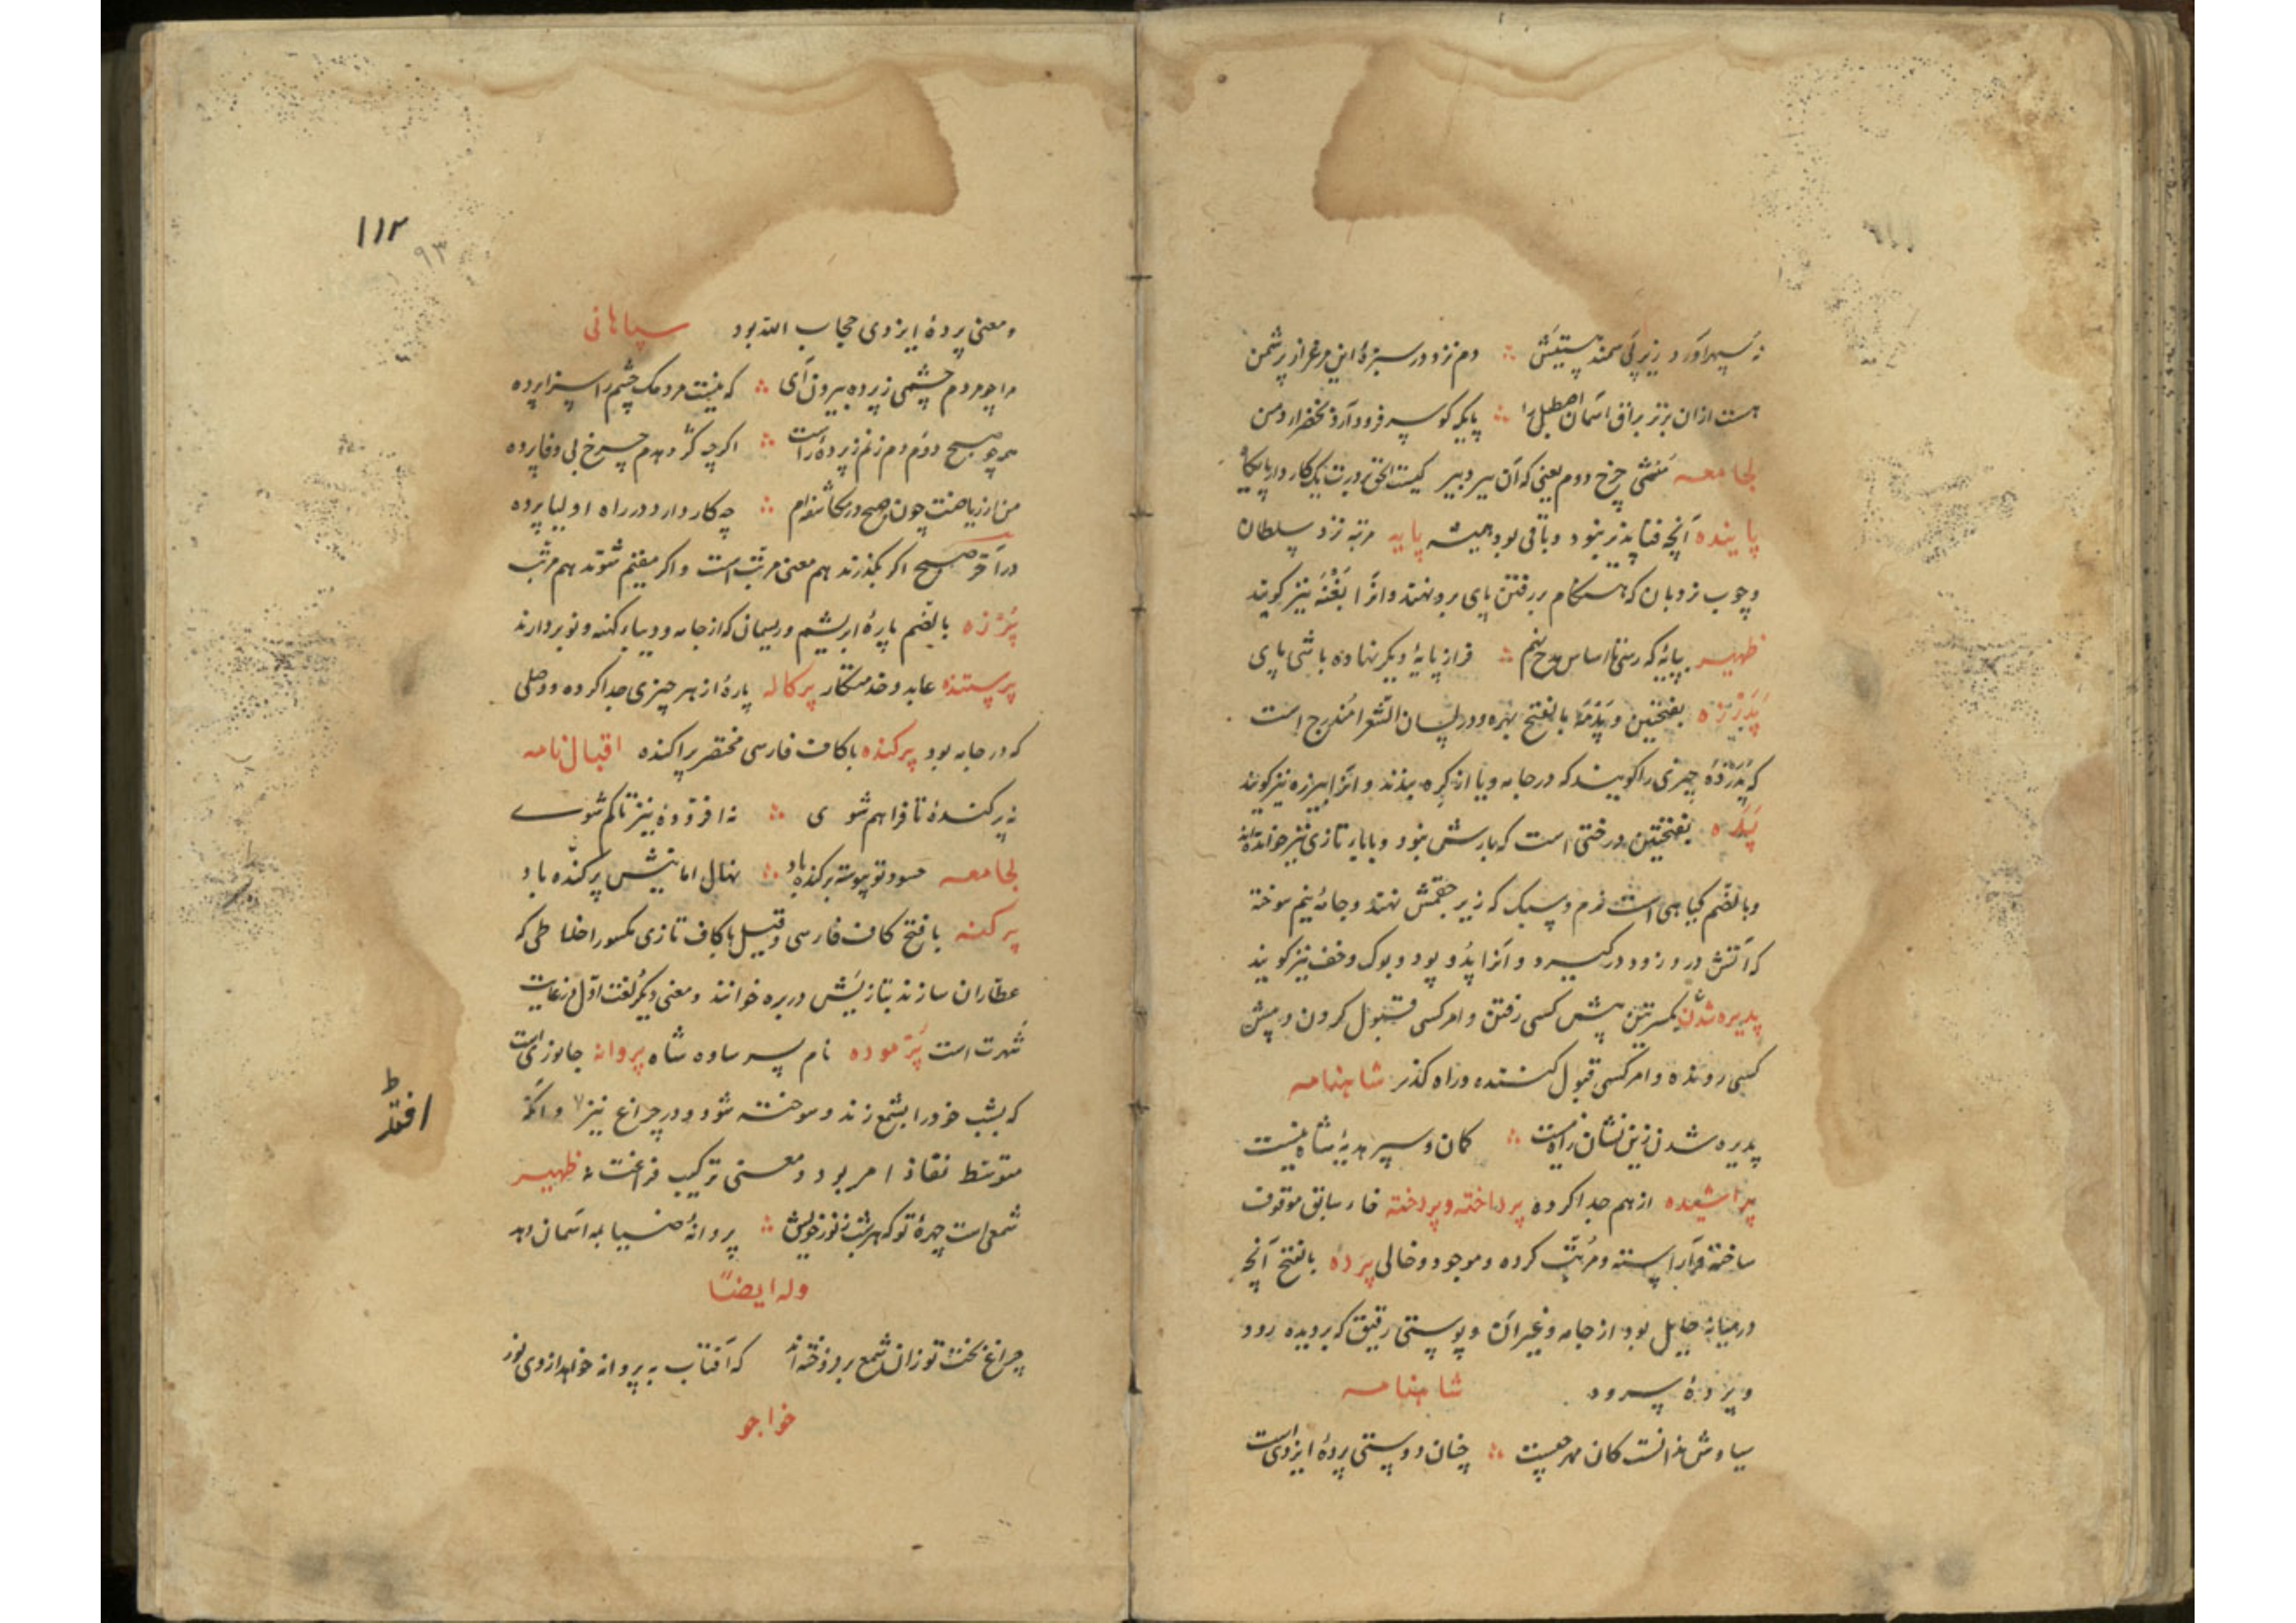 هست ازان برتر براق آسمان اصطبل را ؞ پایکه کو سر فرود آرد بخضرا دمن
لجامعه منشی چرخ دوم یعنی که آن پیر دبیر
پاینده آنچه فناپذیر نبود و باقی بود همیشه پایه مرتبه نزد سلطان
و چوب نردبان که هنگام بر رفتن پای برو نهند و انرا نیز کویند
ظهیر بپایهٔ که رسی تا اساس مدح نهم ؞ فراز پایهٔ دیکر نهاده باشی پای
بفتحتین و بالفتح بهره و در لسان الشعرا مندرج است
که چیزی را کویند که در جامه و یا ازکره بندند و انرا نیز کویند
بفتحتین درختی است که بارش نبود و بابای تازی نیز خوانده‌اند
و بالضم کیاهی است نرم و سبک که زیر چقمقش نهند و جامهٔ نیم سوخته
که آتش درو زود درکیرد و آنرا پد و پود و بوک و خف نیز کویند
پذیره شدن بکسرتین پیش کسی رفتن و امر کسی قبول کردن و پیش
کسی رونده و امر کسی قبول کننده و راه کذر شاهنامه
پذیره شدن زین نشان راه نیست ؞ کمان و سپر هدیهٔ شاه نیست
پراشیده از هم جدا کرده پرداخته و پردخته فاء سابق موقوف
ساخته و آراسته و مرتب کرده و موجود و خالی پرده بالفتح آنچه
درمیانه حایل بود از جامه و غیر ان و پوستی رقیق که بر دیده رود
و پردهٔ سرود شاهنامه
سیاوش بدانست کان مهر چیست ؞ چنان دوستی پردهٔ ایزدی است
۱۱۲
۹۳
و معنی پردهٔ ایزدی حجاب الله بود سپاهانی
مرا چو مردم چشمی ز پرده بیرون آی ؞ که نیست مردمک چشم را سزا پرده
هر چو صبح دوم دم زنم ز پردهٔ راست ؞ اکرچه کژ دهدم چرخ بی وفا پرده
؞ چه کار دارد در راه اولیا پرده
در آخر صبح اکر بکذرند هم معنی مرتب است و اکر مقیم شوند هم مرتب
پرزه بالضم پارهٔ ابریشم و ریسمانی که از جامه و دیباء کهنه و نو بردارند
پرستنده عابد و خدمتکار پرکاله پارهٔ از هر چیزی جدا کرده و وصلی
که در جامه بود پرکنده باکاف فارسی مختصر پراکنده اقبال نامه
نه پرکندهٔ تا فراهم شوی ؞ نه افزودهٔ نیز تا کم شوی
لجامعه حسود تو پیوسته پرکنده باد ؞ نهال امانیش پرکنده باد
پرکنه با فتح کاف فارسی و قیل باکاف تازی مکسور اخلاطی که
عطاران سازند بتازیش ذریره خوانند و معنی دیکر لغت اول
شهرت است پرموده نام پسر ساوه شاه پروانه جانوری است
که بشب خود را بشمع زند و سوخته شود و در چراغ نیز و آنکه
متوسط نفاذ امر بود و معنی ترکیب ظهیر
شمعی است چهرهٔ تو که هر شب ز نور خویش ؞ پروانهٔ ضیا بمه آسمان دهد
وله ایضًا
چراغ بخت تو زان شمع بر فروخته‌اند که آفتاب به پروانه خواهد از وی نور
خواجو
افتد